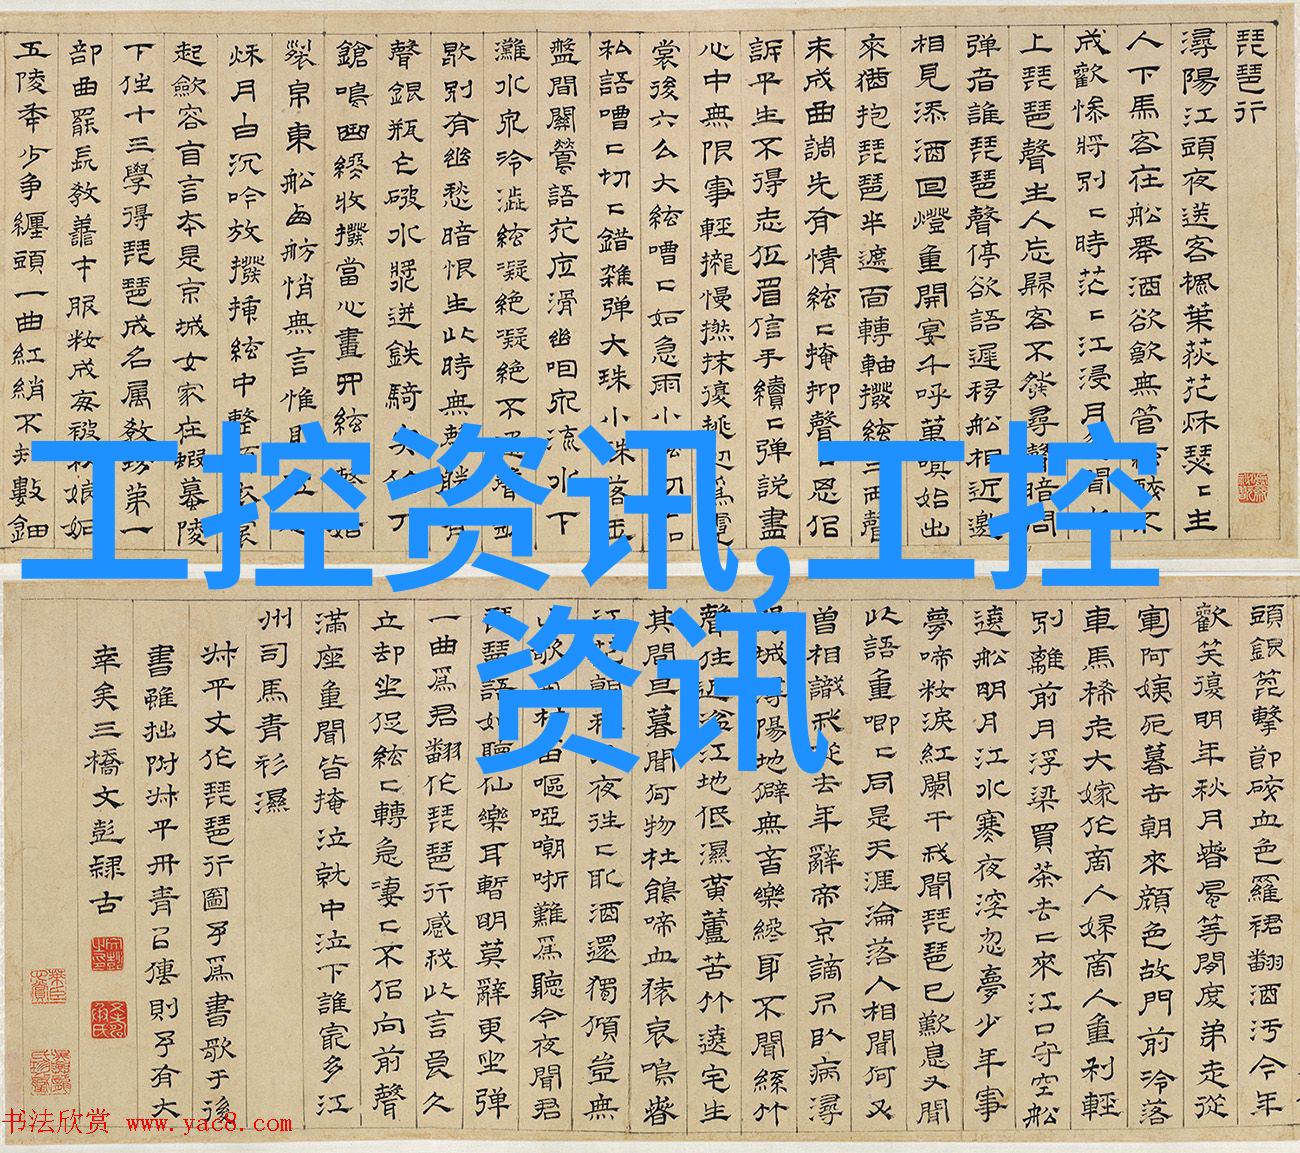 琵琶行
潯陽江頭夜送客楓葉荻花秌瑟〻主
人下馬客在船舉酒欲飲無管
成歡慘將別〻時茫〻江浸月
上琵琶聲主人忘歸客不發尋聲暗問
弹者誰琵琶聲停欲語遲移船相近邀
相見添酒回燈重開宴千呼萬喚始出
來猶抱琵琶半遮面轉軸撥絃三兩聲
未成曲調先有情絃〻掩抑聲〻思佀
訴平生不得志低眉信手續〻弹說盡
心中無限事輕攏慢撚抹復挑
裳後六么大絃嘈〻如急雨小
私語嘈〻切〻錯雜弹大珠小珠落玉
盤間關鶯語花底滑幽咽泉流水下
灘水泉冷澁絃凝絕凝絕不
歇別有幽愁暗恨生此時無
聲銀瓶乍破水漿迸鉄騎突
鎗鳴曲終收撥當心畫四絃
裂帛東船西舫悄無言惟見
秌月白沉吟放撥揷絃中整
起斂容自言本是京城女家在蝦蟇陵
下住十三學得琵琶成名属教坊第一
部曲罷長教善才服妝成每被
五陵年少争纏頭一曲紅綃不知數鈿
頭銀篦擊節碎血色羅裙翻酒污今年
歡笑復明年秋月春風等閒度弟走從
軍阿姨死暮去朝來顔色故門前冷落
車馬稀老大嫁作商人婦商人重利輕
別離前月浮梁買茶去〻來江口守空船
遶船明月江水寒夜深忽夢少年事
夢啼妝淚紅闌干我聞琵琶已歎息又聞
此語重唧〻同是天涯淪落人相聞何又
曽相識我從去年辭帝京謫居臥病潯
陽城潯陽地僻無音樂終年不聞絲竹
聲住近湓江地低濕黄蘆苦竹遶宅生
其間旦暮聞何物杜鵑啼血猿哀鳴春
江花朝秋月夜往〻取酒還獨傾豈無
山歌與村笛嘔啞嘲哳難爲聽今夜聞君
琵琶語如聽仙樂耳暫明莫辭更坐弹
一曲爲君翻作琵琶行感我此言良久
立却坐促絃〻轉急凄〻不佀向前聲
滿座重聞皆掩泣就中泣下誰最多江
州司馬青衫濕
書法欣赏 www.yac8.com
工控资讯,工控
资讯